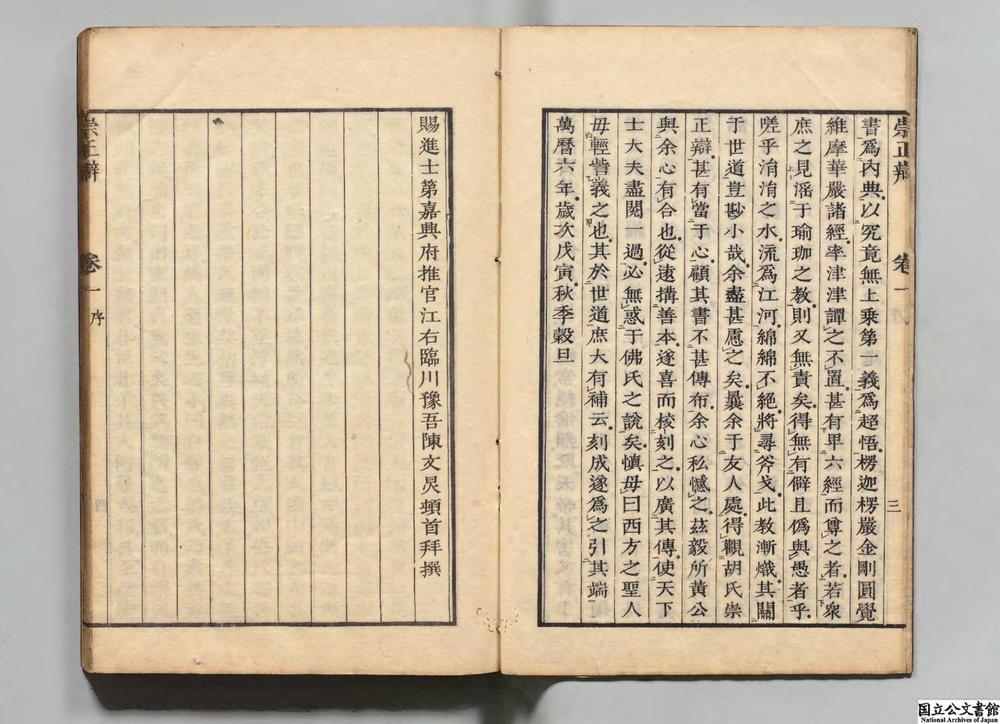 崇正辯 卷一 序 三
書爲內典以究竟無上乘第一義爲超悟楞迦楞嚴金剛圓覺
維摩華嚴諸經率津津譚之不置甚有卑六經而尊之者若衆
庶之見滛于瑜珈之教則又無責矣得無有僻且僞與愚者乎
嗟乎涓涓之水流爲江河綿綿不絕將尋斧戈此教漸熾其關
于世道豈尠小哉余盡甚慝之矣曩余于友人處得觀胡氏崇
正辯甚有當于心顧其書不甚傳布余心私憾之茲毅所黃公
與余心有合也從遠搆善本遂喜而校刻之以廣其傳使天下
士大夫盡閱一過必無惑于佛氏之說矣慎毋曰西方之聖人
毋輕訾義之也其於世道庶大有補云刻成遂爲之引其端
萬曆六年歲次戊寅秋季穀旦
賜進士第嘉興府推官江右臨川豫吾陳文炅頓首拜撰
崇正辯 卷一 序 四
国立公文書館
National Archives of Japan